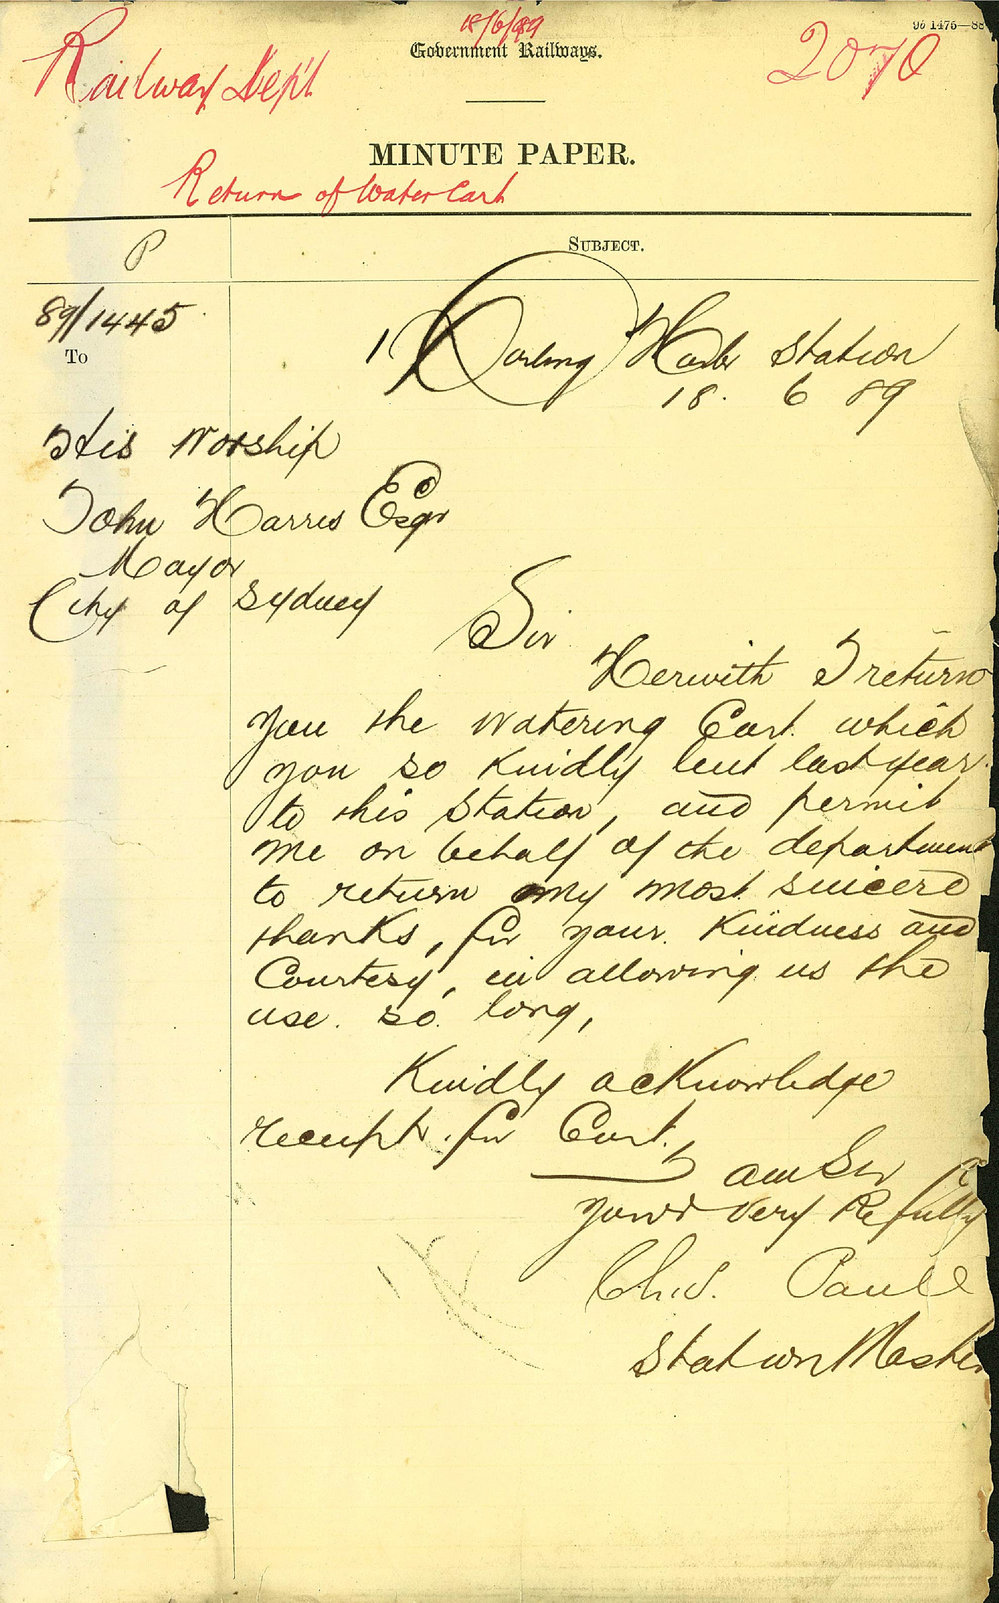 18/6/89
96 1475—88
Government Railways.
Railway Dep't
2070
MINUTE PAPER.
Return of Water Cart
P
SUBJECT.
89/1445
To
Darling Harbr Station
18. 6 89
His Worship
John Harris Esqr
Mayor
City of Sydney
Sir
Herwith I return
you the Watering Cart. which
you so Kindly lent last year.
to this Station, and permit
me on behalf of the department
to return my most sincere
thanks, for your Kindness and
Courtesy, in allowing us the
use. so. long,
Kindly acKnowledge
receipt for Cart.
I am Sir
Yours Very Refully
Chs. Paull
Station Master